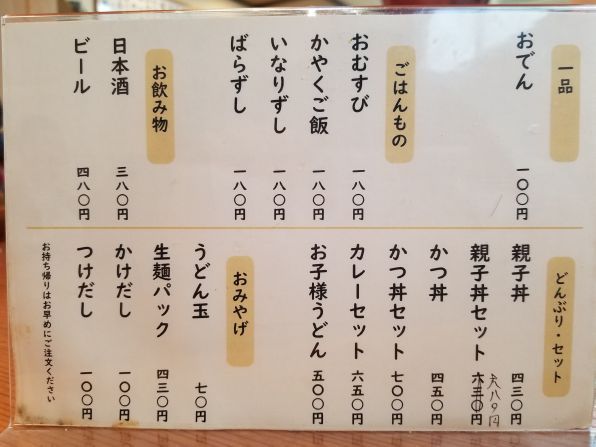 一品
おでん 一〇〇円
ごはんもの
おむすび 一八〇円
かやくご飯 一八〇円
いなりずし 一八〇円
ばらずし 一八〇円
お飲み物
日本酒 三八〇円
ビール 四八〇円
どんぶり・セット
親子丼 四三〇円
親子丼セット 六八〇円
かつ丼 四五〇円
かつ丼セット 七〇〇円
カレーセット 六五〇円
お子様うどん 五〇〇円
おみやげ
うどん玉 七〇円
生麺パック 四三〇円
かけだし 一〇〇円
つけだし 一〇〇円
お持ち帰りはお早めにご注文ください